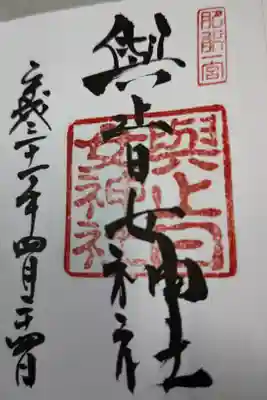 肥前一宮
與止日女神社
與止日
女神社
平成二十一年四月二十四日